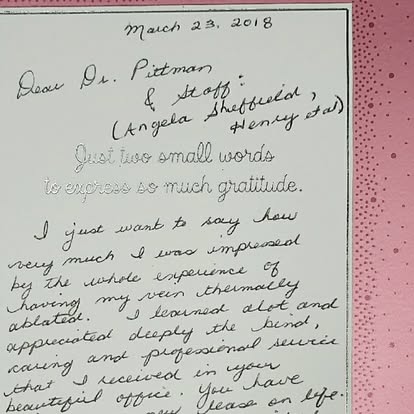 March 23, 2018
Dear Dr. Pittman
& Staff:
(Angela Sheffield,
Henry et al)
Just two small words
to express so much gratitude.
I just want to say how
very much I was impressed
by the whole experience of
having my vein thermally
ablated. I learned alot and
appreciated deeply the kind,
caring and professional service
that I received in your
beautiful office. You have
new lease on life.